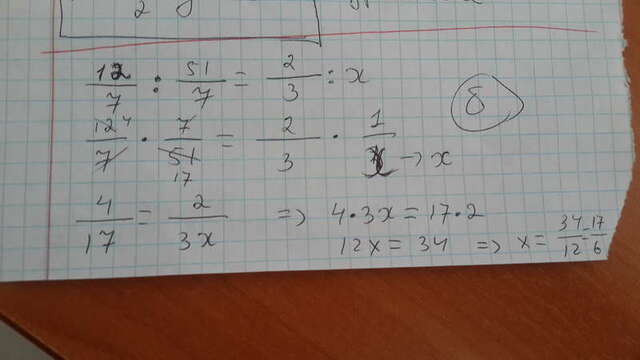 12/7 : 51/7 = 2/3 : x
8
12 4/7 · 7/51 17 = 2/3 · 1/x → x
4/17 = 2/3x => 4·3x = 17·2
12x = 34 => x = 34/12 = 17/6